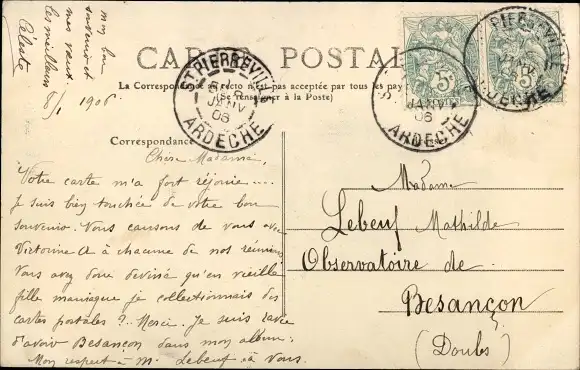 mon bon
souvenir et
mes vœux
les meilleurs 8/1
Céleste 1906
CARTE POSTALE
La Correspondance au recto n'est pas acceptée par tous les pays
(Se renseigner à la Poste)
ST PIERREVILLE
8 JANV 06
ARDECHE
JANV
06
ARDECHE
PIERREVILLE
5c
5c
Correspondance
Chère Madame,
Votre carte m'a fort réjouie ....
Je suis bien touchée de votre bon
souvenir. Nous causons de vous avec
Victorine A à chacune de nos réunions
Vous avez donc deviné qu'en vieille
fille maniaque je collectionnais des
cartes postales ? Merci. Je suis ravie
d'avoir Besançon dans mon album.
Mon respect à M. Lebeuf & à Vous.
Madame
Lebeuf Mathilde
Observatoire de
Besançon
(Doubs)